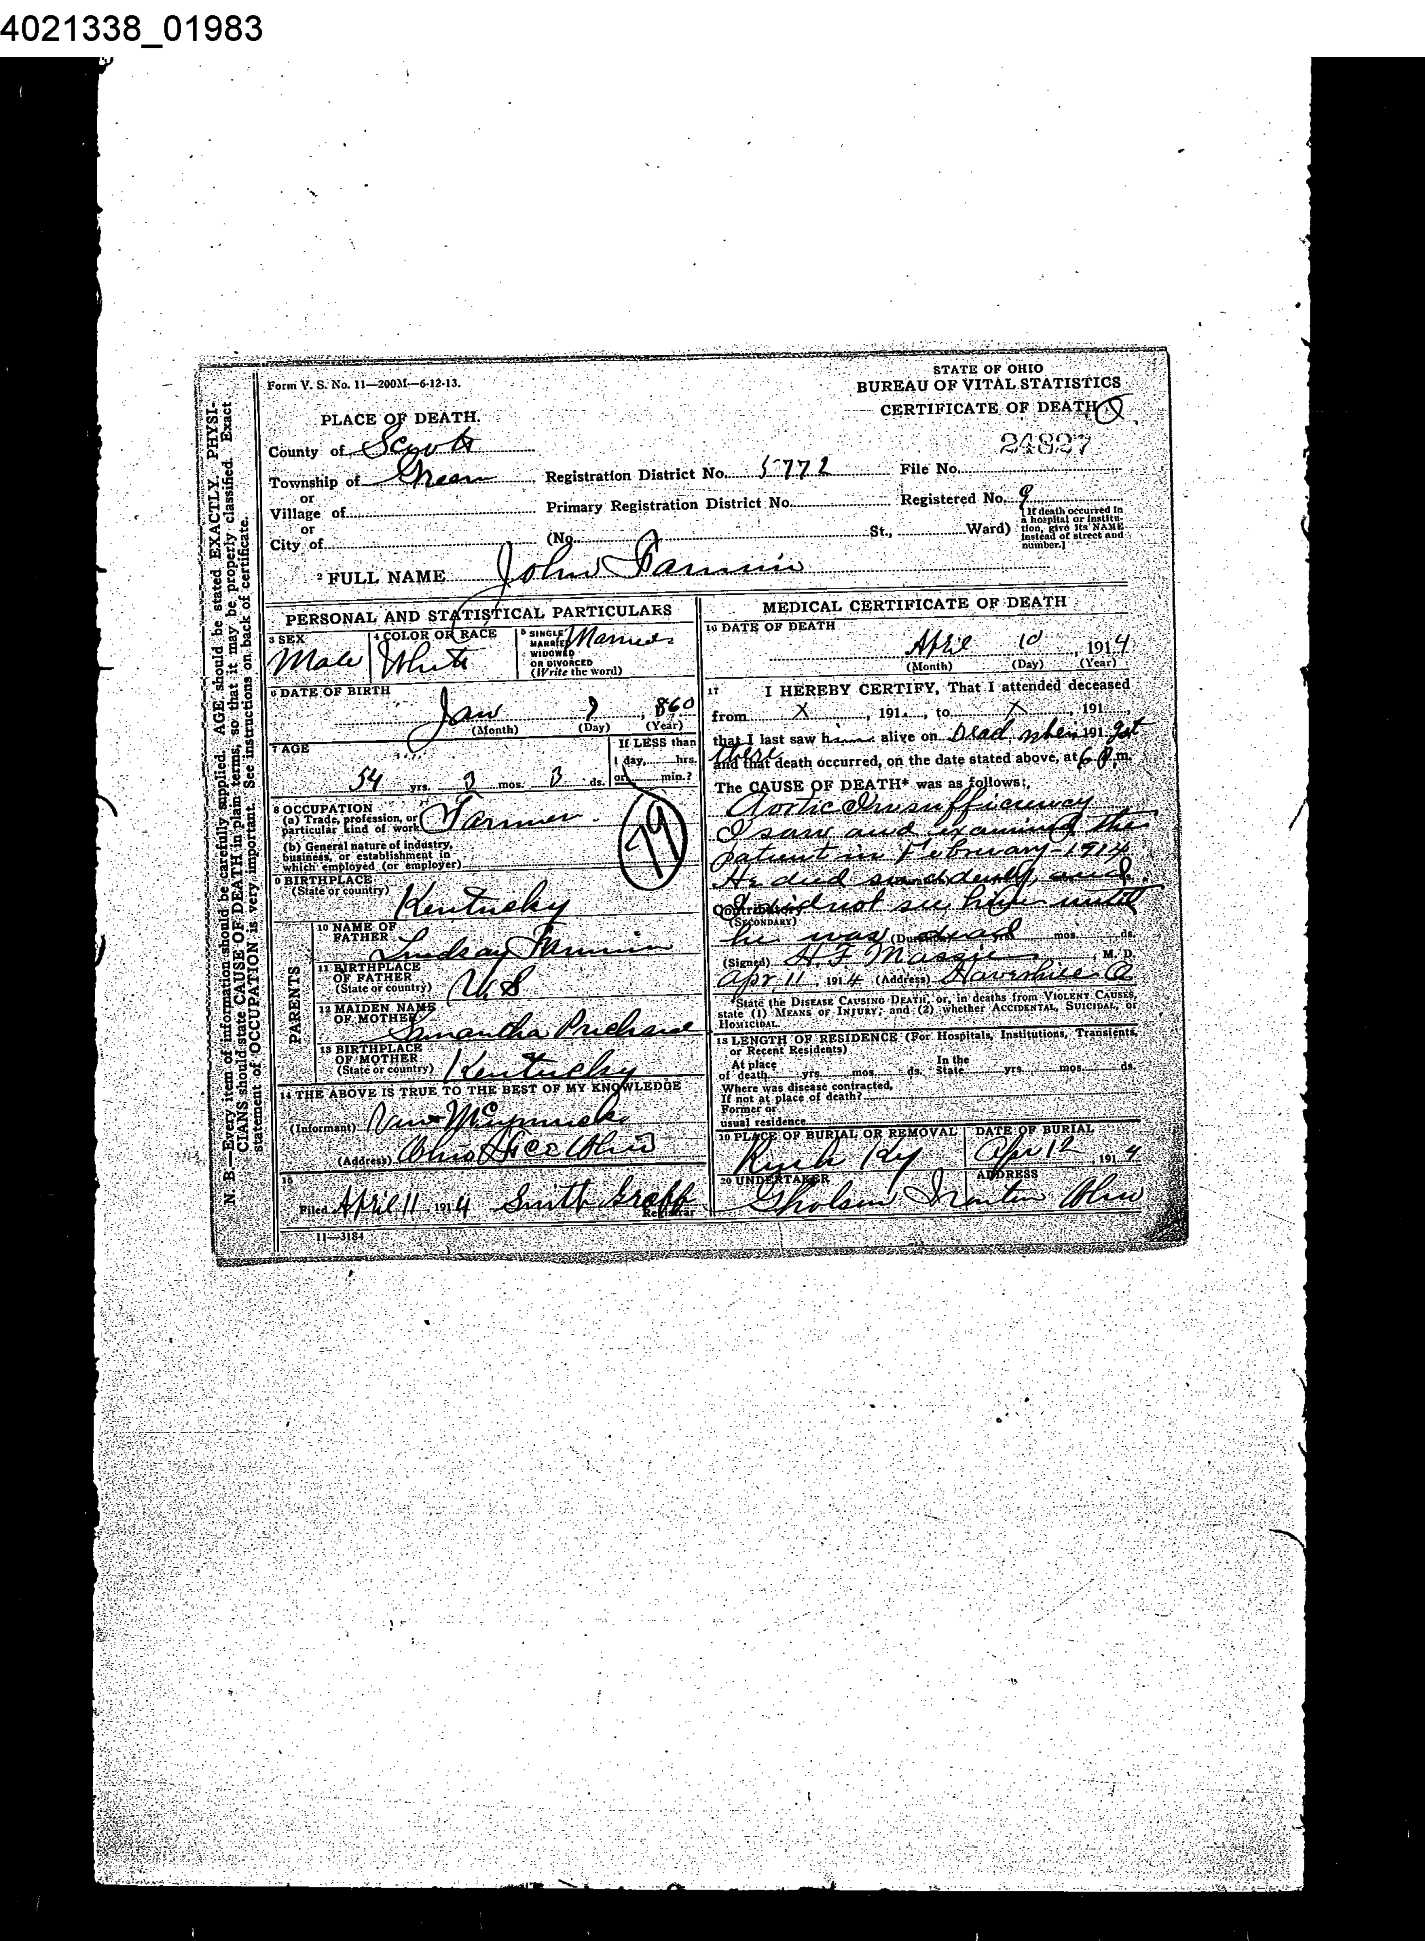 4021338_01983
Form V. S. No. 11—200M—6-12-13.
STATE OF OHIO
BUREAU OF VITAL STATISTICS
CERTIFICATE OF DEATH
PLACE OF DEATH.
24827
County of Scioto
Township of Green Registration District No. 5772 File No.
or
Village of Primary Registration District No. Registered No. 9
or
City of (No. St., Ward)
[If death occurred in
a hospital or institu-
tion, give its NAME
instead of street and
number.]
2 FULL NAME John Fannin
PERSONAL AND STATISTICAL PARTICULARS
3 SEX
Male
4 COLOR OR RACE
White
5 SINGLE
MARRIED
WIDOWED
OR DIVORCED
(Write the word)
Married
6 DATE OF BIRTH
Jan 7, 860
(Month) (Day) (Year)
7 AGE
54 yrs. 3 mos. 3 ds.
If LESS than
1 day, hrs.
or min.?
8 OCCUPATION
(a) Trade, profession, or
particular kind of work Farmer
(b) General nature of industry,
business, or establishment in
which employed (or employer)
79
9 BIRTHPLACE
(State or country)
Kentucky
PARENTS
10 NAME OF
FATHER
Lindsay Fannin
11 BIRTHPLACE
OF FATHER
(State or country)
U.S
12 MAIDEN NAME
OF MOTHER
Simantha
13 BIRTHPLACE
OF MOTHER
(State or country)
Kentucky
14 THE ABOVE IS TRUE TO THE BEST OF MY KNOWLEDGE
(Informant)
(Address) Ohio
15
Filed April 11 1914 Smith Graff
Registrar
11—3184
MEDICAL CERTIFICATE OF DEATH
16 DATE OF DEATH
April 10, 1914
(Month) (Day) (Year)
17 I HEREBY CERTIFY, That I attended deceased
from X, 191, to X, 191
that I last saw him alive on Dead when 191 got
there
and that death occurred, on the date stated above, at 6 P m.
The CAUSE OF DEATH* was as follows:
Aortic Insufficiency
I saw and examined the
patient in February-1914
He died suddenly, and
Contributory I did not see him until
(SECONDARY)
he was dead
(Duration) mos. ds.
(Signed) H. F. Massie, M. D.
Apr. 11, 1914 (Address) Haverhill O
*State the DISEASE CAUSING DEATH, or, in deaths from VIOLENT CAUSES,
state (1) MEANS OF INJURY; and (2) whether ACCIDENTAL, SUICIDAL, or
HOMICIDAL.
18 LENGTH OF RESIDENCE (For Hospitals, Institutions, Transients,
or Recent Residents)
At place
of death yrs. mos. ds.
In the
State yrs. mos. ds.
Where was disease contracted,
If not at place of death?
Former or
usual residence
19 PLACE OF BURIAL OR REMOVAL
Rush Ky
DATE OF BURIAL
Apr 12, 1914
20 UNDERTAKER
Gholson
ADDRESS
Ironton Ohio
N. B.—Every item of information should be carefully supplied. AGE should be stated EXACTLY. PHYSI-
CIANS should state CAUSE OF DEATH in plain terms, so that it may be properly classified. Exact
statement of OCCUPATION is very important. See instructions on back of certificate.